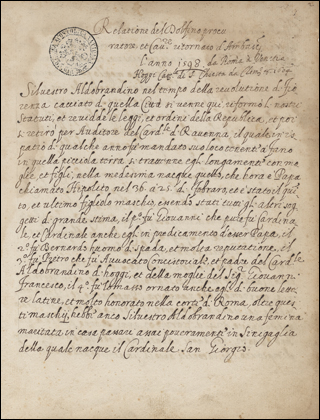 Relatione del Dolfino proco
ratore et Cau.re ritornato d'Ambasc.
l'anno 1598 da Roma a Venetia
Siluestro Aldobrandino nel tempo della reuolutione di Fio
renza cacciato di quella Città ui uenne qui, riformò li nostri
Statuti, et reuidde le leggi, et ordini della Republica, et poi
seruì per Auditore del Card.le di Rauenna, il quale in ca
po di qualche anno fu mandato suo locotenente a fano
in quella piccola terra si trattenne egli longamente con mo
glie, et figli, nella medesima nacque quello, che hora è Papa
chiamato Hipolito nel 36 a 25 di febraro, et è stato il qui
to, et ultimo figliolo maschio, essendo stati tutti gli altri sog
getti di grande stima, il p.o fu Giouanni che pur fu Cardina
le, et Cardinale anche egli in predicamento d'esser Papa, il
2.o fu Bernardo huomo di spada, et molta reputatione, il
3.o fu Pietro che fu Auuocato Concistoriale, et padre del Card.le
Aldobrandino d'hoggi, et della moglie del Sig.r Giouan
Francesco, il 4.o fu Thomasso ornato anche egli di buone lette
re latine, et molto honorato nella corte di Roma, oltre ques
ti maschi, hebbe anco Siluestro Aldobrandino una femina
maritata in casa assai poueramente in Senigaglia
della quale nacque il Cardinale San Giorgio.